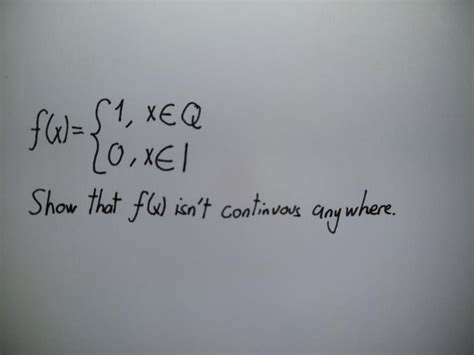 f(x)= { 1, x∈Q
0, x∈I
Show that f(x) isn't continuous anywhere.